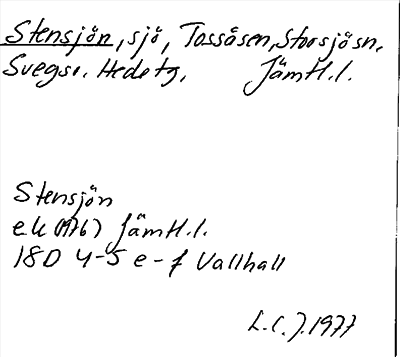 Stensjön, sjö, Tossåsen, Storsjö sn.
Svegs o. Hede tg, Jämtl.l.
Stensjön
ek (1976) Jämtl.l.
18D 4-5 e-f Vallhall
L.C.J. 1977